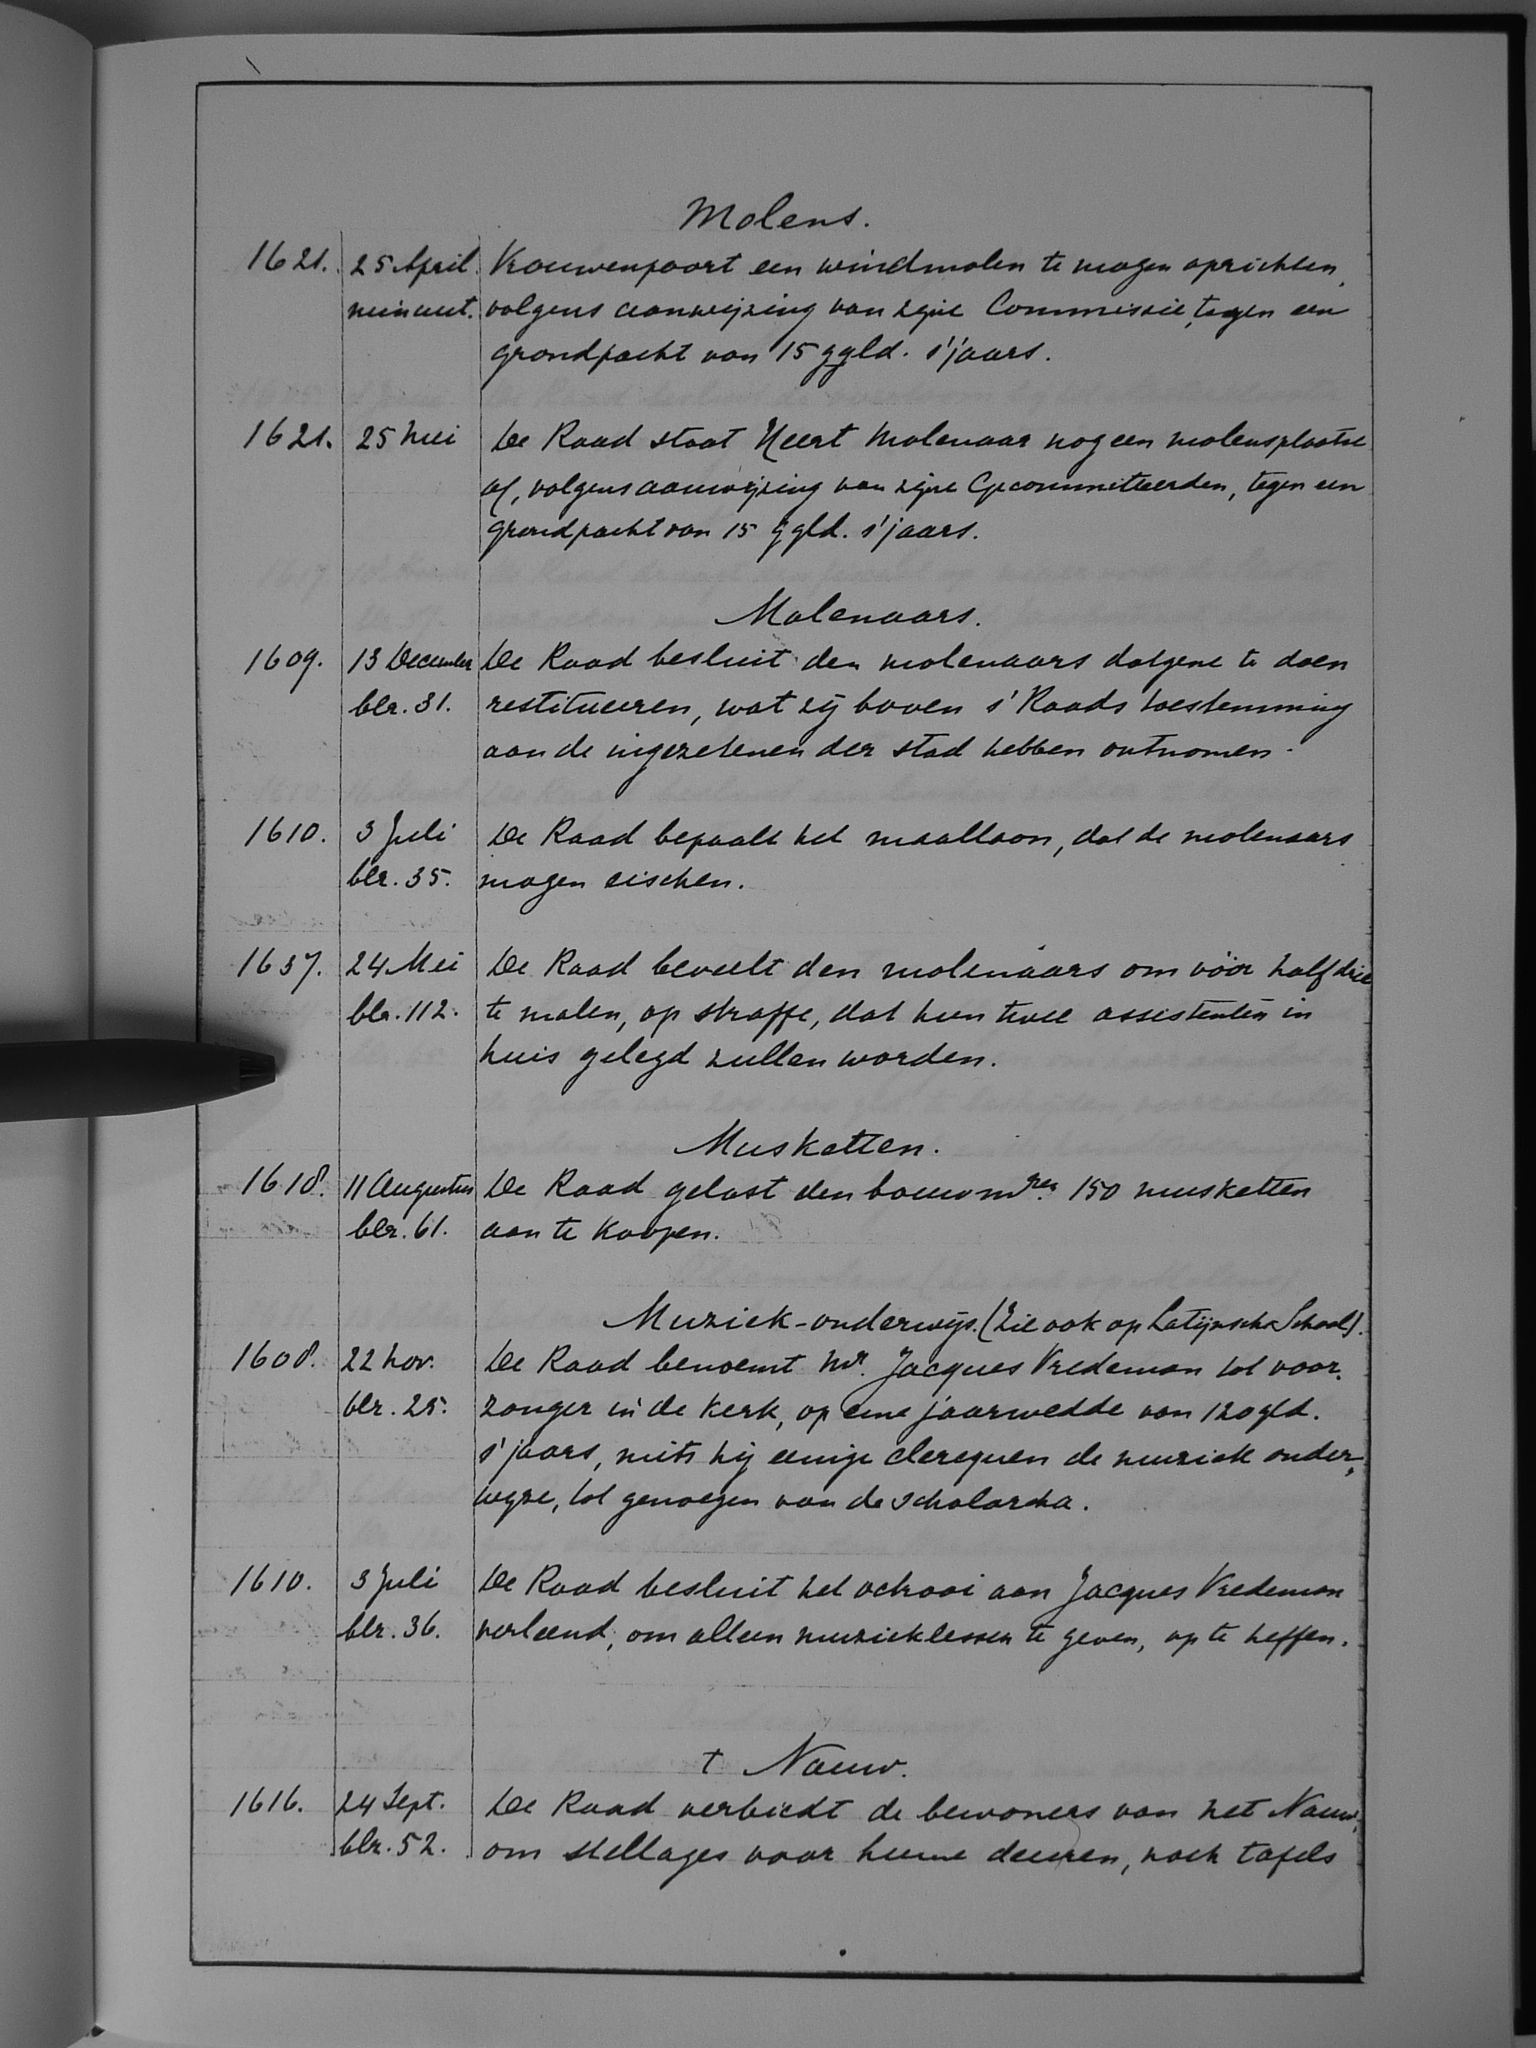 Molens.
1621. 25 April Vrouwenpoort een windmolen te mogen oprichten,
minuut. volgens aanwijzing van zijne Commissie, tegen een
grondpacht van 15 ggld. s'jaars.
1621. 25 Mei De Raad staat Neert Molenaar nog een molensplaatse
af, volgens aanwijzing van zijne Gecommitteerden, tegen een
grondpacht van 15 ggld. s'jaars.
Molenaars.
1609. 13 December De Raad besluit den molenaars datgene te doen
blz. 31. restitueeren, wat zij boven s'Raads toestemming
aan de ingezetenen der stad hebben ontnomen.
1610. 3 Juli De Raad bepaalt het maalloon, dat de molenaars
blz. 35. mogen eischen.
1637. 24 Mei De Raad beveelt den molenaars om vóór half drie
blz. 112. te malen, op straffe, dat hun twee assistenten in
huis gelegd zullen worden.
Musketten.
1618. 11 Augustus De Raad gelast den bouwmren 150 musketten
blz. 61. aan te koopen.
Muziek-onderwijs. (Zie ook op Latijnsche School).
1608. 22 Nov. De Raad benoemt Mr. Jacques Vredeman tot voor-
blz. 25. zanger in de kerk, op eene jaarwedde van 120 gld.
s'jaars, mits hij eenige clerequen de muziek onder-
wijze, tot genoegen van de scholarcha.
1610. 3 Juli De Raad besluit het octrooi aan Jacques Vredeman
blz. 36. verleend, om alleen muzieklessen te geven, op te heffen.
† Nauw.
1616. 24 Sept. De Raad verbiedt de bewoners van het Nauw,
blz. 52. om stellages voor hunne deuren, noch tafels